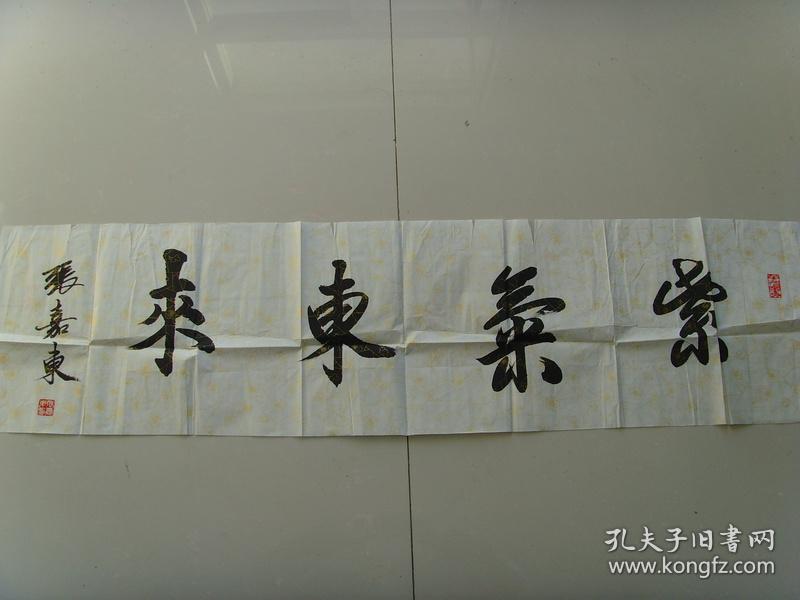 紫氣東來
張嘉東
孔夫子旧書网
www.kongfz.com